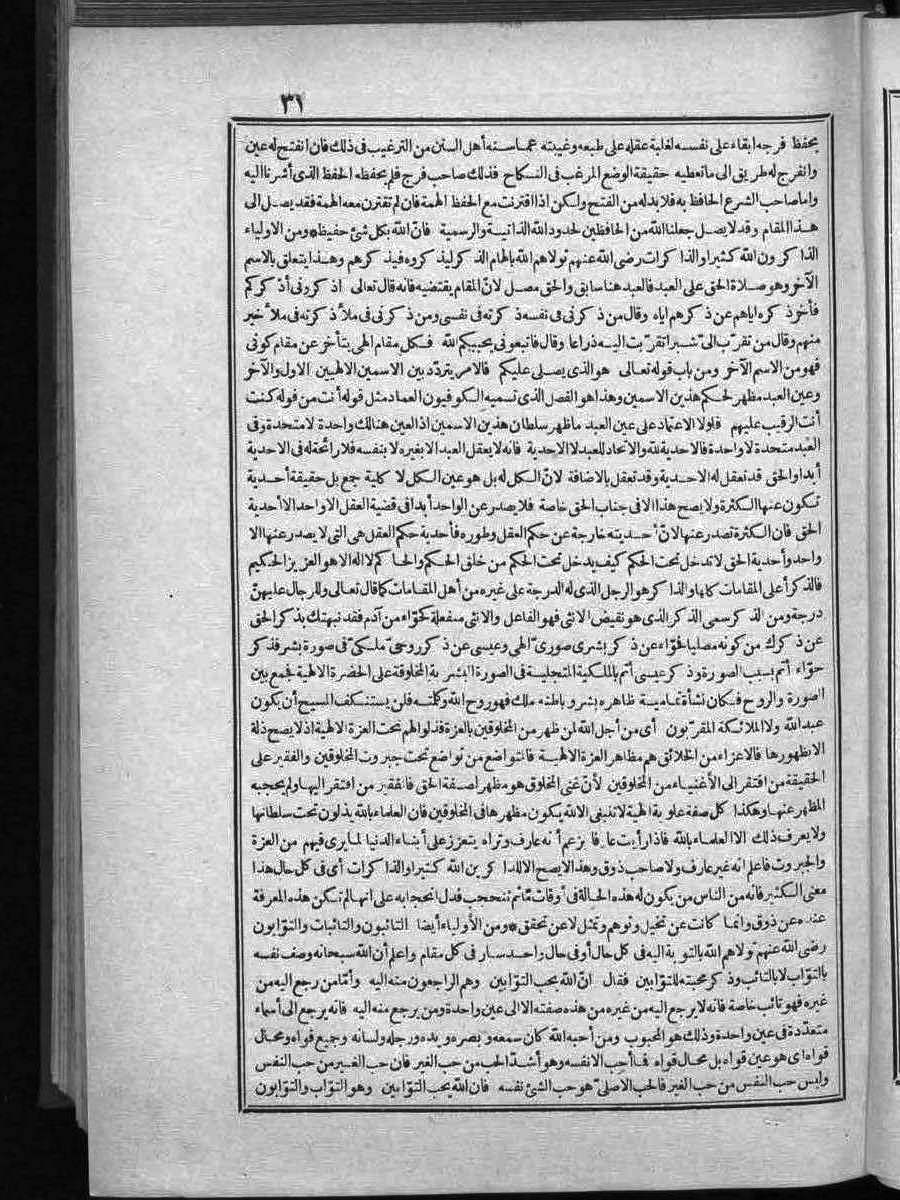 ٣١
يحفظ فرجه ابقاء على نفسه لغلبة عقله على طبعه وغيبته عما سنته أهل السنن من الترغيب فى ذلك فان انفتح له عين
وانفرج له طريق الى ما تعطيه حقيقة الوضع المرغب فى النكاح فذلك صاحب فرج فلم يحفظه الحفظ الذى أشرنا اليه
واما صاحب الشرع الحافظ به فلا بد له من الفتح ولكن اذا اقترنت مع الحفظ الهمة فان لم تقترن معه الهمة فقد يصل الى
هذا المقام وقد لا يصل جعلنا الله من الحافظين لحدود الله الذاتية والرسمية فان الله بكل شئ حفيظ * ومن الاولياء
الذاكرون الله كثيرا والذاكرات رضى الله عنهم تولاهم الله بالهام الذكر ليذكروه فيذكرهم وهذا يتعلق بالاسم
الآخر وهو صلاة الحق على العبد فالعبد هنا سابق والحق مصل لانّ المقام يقتضيه فانه قال تعالى اذكرونى أذكركم
فأخر ذكره اياهم عن ذكرهم اياه وقال من ذكرنى فى نفسه ذكرته فى نفسى ومن ذكرنى فى ملأ ذكرته فى ملأ خير
منهم وقال من تقرّب الىّ شبرا تقرّبت اليه ذراعا وقال فاتبعونى يحببكم الله فكل مقام الهى يتأخر عن مقام كونى
فهو من الاسم الآخر ومن باب قوله تعالى هو الذى يصلى عليكم فالامر يتردّد بين الاسمين الالهيين الاول والآخر
وعين العبد مظهر لحكم هذين الاسمين وهذا هو الفصل الذى تسميه الكوفيون العماد مثل قوله أنت من قوله كنت
أنت الرقيب عليهم فلولا الاعتماد على عين العبد ما ظهر سلطان هذين الاسمين اذ العين هنالك واحدة لا متحدة وفى
العبد متحدة لا واحدة فالاحدية لله والاتحاد للعبد لا الاحدية فانه لا يعقل العبد الا بغيره لا بنفسه فلا رائحة له فى الاحدية
أبدا والحق قد تعقل له الاحدية وقد تعقل بالاضافة لانّ الكل له بل هو عين الكل لا كلية جمع بل حقيقة أحدية
تكون عنها الكثرة ولا يصح هذا الا فى جناب الحق خاصة فلا يصدر عن الواحد أبدا فى قضية العقل الا واحد الا أحدية
الحق فان الكثرة تصدر عنها لانّ أحديته خارجة عن حكم العقل وطوره فأحدية حكم العقل هى التى لا يصدر عنها الا
واحد وأحدية الحق لا تدخل تحت الحكم كيف يدخل تحت الحكم من خلق الحكم والحاكم لا اله الا هو العزيز الحكيم
فالذكر أعلى المقامات كلها والذاكر هو الرجل الذى له الدرجة على غيره من أهل المقامات كما قال تعالى وللرجال عليهنّ
درجة ومن الذكر سمى الذكر الذى هو نقيض الانثى فهو الفاعل والانثى منفعلة كحوّاء من آدم فقد نبهتك بذكر الحق
عن ذكرك من كونه مصليا فحوّاء عن ذكر بشرى صورىّ الهى وعيسى عن ذكر روحىّ ملكىّ فى صورة بشر فذكر
حوّاء أتم بسبب الصورة وذكر عيسى أتم بالملكية المتجلية فى الصورة البشرية المخلوقة على الحضرة الالهية فجمع بين
الصورة والروح فكان نشأة تمامية ظاهره بشر وباطنه ملك فهو روح الله وكلمته فلن يستنكف المسيح أن يكون
عبد الله ولا الملائكة المقرّبون أى من أجل الله لمن ظهر من المخلوقين بالعزة فذلوا لهم تحت العزة الالهية اذ لا يصح ذلة
الا لظهورها فالاعزاء من الخلائق هم مظاهر العزة الالهية فالمتواضع من تواضع تحت جبروت المخلوقين والفقير على
الحقيقة من افتقر الى الأغنياء من المخلوقين لأنّ غنى المخلوق هو مظهر لصفة الحق فالفقير من افتقر اليها ولم يحجبه
المظهر عنها وهكذا كل صفة علوية الهية لا تنبغى الا لله يكون مظهرها فى المخلوقين فان العلماء بالله يذلون تحت سلطانها
ولا يعرف ذلك الا العلماء بالله فاذا رأيت عارفا يزعم أنه عارف وتراه يتعزز على أبناء الدنيا لما يرى فيهم من العزة
والجبروت فاعلم انه غير عارف ولا صاحب ذوق وهذا لا يصح الا للذاكرين الله كثيرا والذاكرات أى فى كل حال هذا
معنى الكثير فانه من الناس من يكون له هذه الحالة فى أوقات مّا ثم تنحجب فدل انحجابه على انها لم تكن هذه المعرفة
عنده عن ذوق وانما كانت عن تخيل وتوهم وتمثل لا عن تحقق * ومن الأولياء أيضا التائبون والتائبات والتوّابون
رضى الله عنهم تولاهم الله بالتوبة اليه فى كل حال أو فى حال واحد سار فى كل مقام واعلم أن الله سبحانه وصف نفسه
بالتوّاب لا بالتائب وذكر محبته للتوّابين فقال انّ الله يحب التوّابين وهم الراجعون منه اليه وأمّا من رجع اليه من
غيره فهو تائب خاصة فانه لا يرجع اليه من غيره من هذه صفته الا الى عين واحدة ومن يرجع منه اليه فانه يرجع الى أسماء
متعدّدة فى عين واحدة وذلك هو المحبوب ومن أحبه الله كان سمعه وبصره ويده ورجله ولسانه وجميع قواه ومحال
قواه أى هو عين قواه بل محال قواه فما أحب الا نفسه وهو أشدّ الحب من حب الغير فان حب الغير من حب النفس
وليس حب النفس من حب الغير فالحب الاصلىّ هو حب الشئ نفسه فان الله يحب التوّابين وهو التوّاب والتوّابون